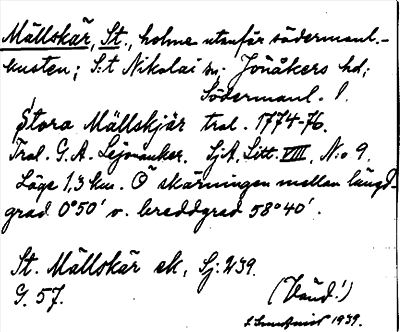 Mällskär, St., holme utanför södermanl.-
kusten; S:t Nikolai sn; Jönåkers hd;
Södermanl. l.
Stora Mällskjär tral. 1774-76.
Tral. G.A. Lejonanker. SjA, Litt. VIII, N:o 9.
Läge 1,3 km. Ö skärningen mellan längd-
grad 0°50' v. breddgrad 58°40'.
St. Mällskär ek, Sj: 239.
G. 57.
(Vänd!)
1939.